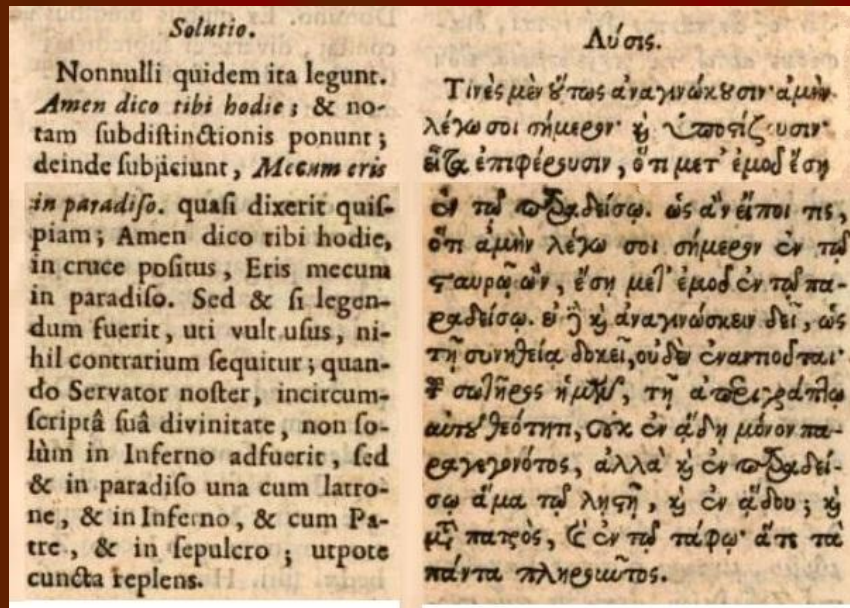 Solutio.
Nonnulli quidem ita legunt.
Amen dico tibi hodie; & no-
tam ſubdiſtinctionis ponunt;
deinde ſubjiciunt, Mecum eris
in paradiſo. quaſi dixerit quiſ-
piam; Amen dico tibi hodie,
in cruce poſitus, Eris mecum
in paradiſo. Sed & ſi legen-
dum fuerit, uti vult uſus, ni-
hil contrarium ſequitur; quan-
do Servator noſter, incircum-
ſcriptâ ſuâ divinitate, non ſo-
lùm in Inferno adfuerit, ſed
& in paradiſo una cum latro-
ne, & in Inferno, & cum Pa-
tre, & in ſepulcro; utpote
cuncta replens.
Λύσις.
Τινὲς μὲν ȣ̔́τως ἀναγινώκȣσιν· ἀμὴν
λέγω σοι σήμερον· ϗ ὑποστίζουσιν·
εἶτα ἐπιφέρουσιν, ὅτι μετ' ἐμοῦ ἔσῃ
ἐν τῷ παραδείσῳ. ὡς ἂν εἴποι τις,
ὅτι ἀμὴν λέγω σοι σήμερον ἐν τῷ
σταυρῷ ὢν, ἔσῃ μετ' ἐμοῦ ἐν τῷ πα-
ραδείσῳ. εἰ δὲ ϗ ἀναγινώσκειν δεῖ, ὡς
τῇ συνηθείᾳ δοκεῖ, οὐδὲν ἐναντιοῦται·
τοῦ σωτῆρος ἡμῶν, τῇ ἀπεριγράπτῳ
αὐτοῦ θεότητι, οὐκ ἐν ᾅδῃ μόνον πα-
ραγεγονότος, ἀλλὰ ϗ ἐν παραδεί-
σῳ ἅμα τῷ λῃστῇ, ϗ ἐν ᾅδου; ϗ
μετὰ πατρὸς, ϗ ἐν τῷ τάφῳ· ἅτε τὰ
πάντα πληροῦντος.